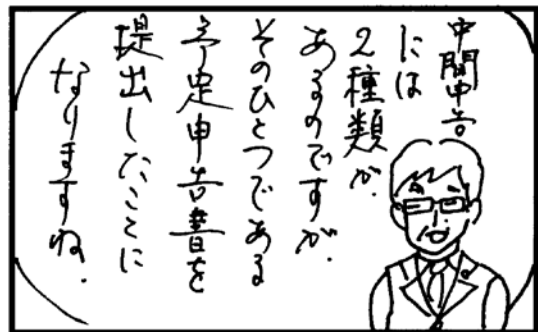 中間申告
には
2種類が、
あるのですが、
そのひとつである
予定申告書を
提出したことに
なりますね。